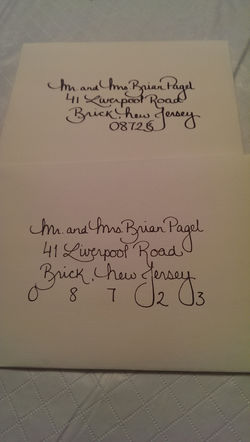 Mr. and Mrs Brian Pagel
41 Liverpool Road
Brick, New Jersey
08723
Mr. and Mrs Brian Pagel
41 Liverpool Road
Brick, New Jersey
0 8 7 2 3